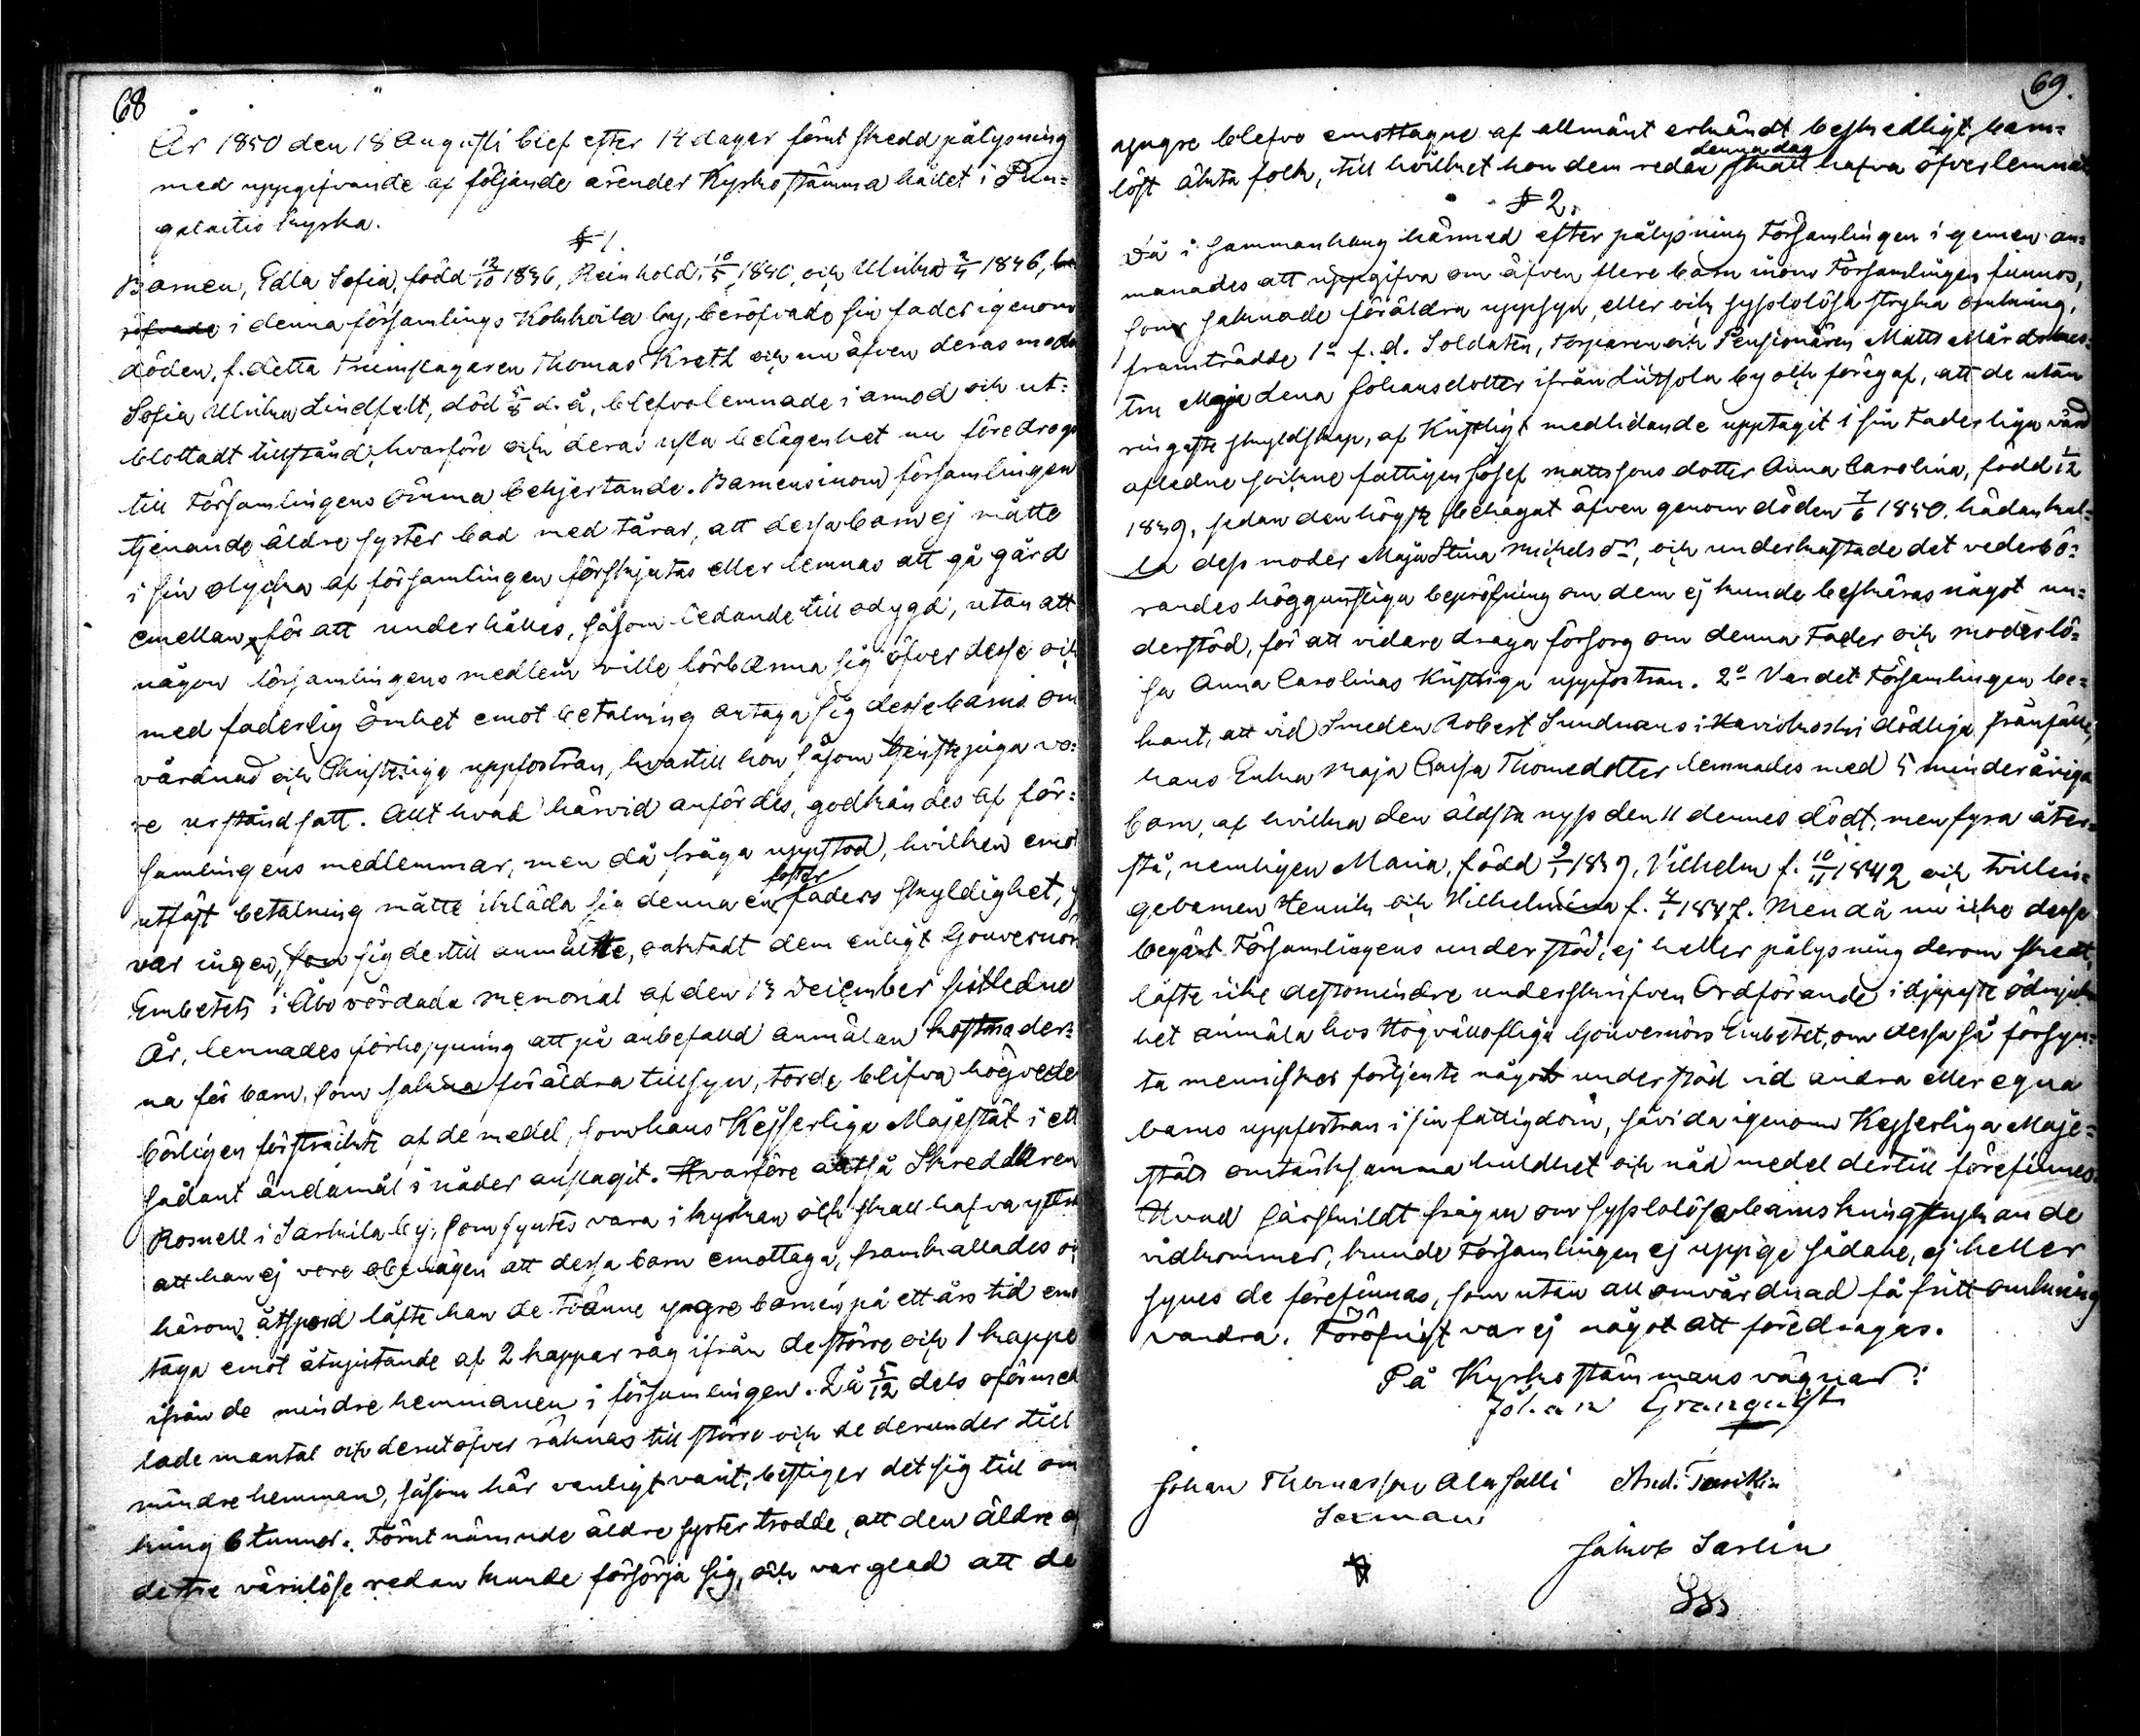 68
År 1850 den 18 Augusti blef efter 14 dagar förut skedd pålysning
med uppgifvande af följande ärender Kyrkostämma hållet i Pun-
galaitio kyrka.
§ 1.
Barnen, Edla Sofia, född 12/10 1836, Reinhold, 10/5 1840, och Ulrika 2/4 1846, be
röfvade i denna församlings Kokkoila by, beröfvade sin fader igenom
döden, f. detta Trumslagaren Thomas Krath och nu äfven deras moder
Sofia Ulrika Lindfelt, död 5/8 d. å, blefvo lemnade i armod och ut-
blottadt tillstånd, hvarföre och deras usla belägenhet nu föredrogs
till Församlingens ömma behjertande. Barnens inom församlingen
tjenande äldre syster bad med tårar, att dessa barn ej måtte
i sin olycka af församlingen förskjutas eller lemnas att gå gård
emellan för att underhålles, såsom ledande till odygd, utan att
någon församlingens medlem ville förbarma sig öfver desse och
med faderlig ömhet emot betalning antaga sig desse barns om
vårdnad och Christeliga uppfostran, hvartill hon såsom tjenstepiga vo-
re urståndsatt. Allt hvad härvid anfördes, godkändes af för-
samlingens medlemmar, men då fråga uppstod, hvilken emot
utfäst betalning måtte ikläda sig denna en foster faders skyldighet, så
var ingen, som sig dertill anmälte, oaktadt dem enligt Gouvernörs
Embetets i Åbo vördade memorial af den 13 December sistledne
År, lemnades förhoppning att på anbefalld anmälan kostnader-
na för barn, som sakna föräldra tillsyn, torde blifva högveder
börligen försträckte af de medel, som hans Kejserliga Majestät i ett
sådant ändamål i nåder anslagit. Hvarföre alltså Skreddaren
Rosnell i Sarkila by, som syntes vara i kyrkan och skall hafva yttrat
att han ej vore obenägen att dessa barn emottaga, framkallades och
härom åtspord låfte han de tvänne yngre barnen på ett års tid emot
taga emot åtnjutande af 2 kappar råg ifrån de större och 1 kappe
ifrån de mindre hemmanen i församlingen. Då 5/12 dels oförmed
lade mantal och derutöfver räknas till större och de derunder till
mindre hemman, såsom här vanligt varit, bestiger det sig till om
kring 6 tunnor. Förutnämnde äldre syster trodde, att den äldre af
de tre värnlöse redan kunde försörja sig, och var glad att de
69.
yngre blefvo emottagne af allmänt erkändt beskedligt, barn-
löst äkta folk, till hvilket hon dem redan denna dag skall hafva öfverlemnat
§ 2.
Då i sammanhang härmed efter pålysning Församlingen i gemen an-
manades att uppgifva om äfven flere barn inom Församlingen finnas,
som saknade föräldra uppsyn, eller och sysslolösa stryka omkring,
framträdde 1o f. d. Soldaten, Torparen och Pensionären Matts Mård
tru Maja Lena Johansdotter ifrån Liitsola by och föregaf, att de utan
ringaste skyldskap, af Kristligt medlidande upptagit i sin Faderliga vård
aflednе sockne fattigen Josef Mattssons dotter Anna Carolina, född 1/12
1839, sedan den högste behagat äfven genom döden 7/6 1850, hädankal-
la dess moder Maja Stina Michelsdr, och underkastade det vederbö-
randes höggunstliga bepröfning om dem ej kunde beskäras något un-
derstöd, för att vidare draga försorg om denna Fader och moderlö-
sa Anna Carolinas Kristliga uppfostran. 2o Var det Församlingen be-
kant, att vid Smeden Robert Sundmans i Haviskoski dödliga frånfälle,
hans Enka Maja Caisa Thomedotter lemnades med 5 minderåriga
barn, af hvilka den äldsta nyss den 11 dennes dödt, men fyra åter-
stå, nemligen Maria, född 9/1 1839, Vilhelm f. 10/11 1842 och tvillin-
gebarnen Henrik och Wilhelmina f. 4/1 1847. Men då nu icke desse
begärt Församlingens understöd, ej heller pålysning derom skett,
låfte icke destomindre underskrifven Ordförande i djupaste ödmjuk
het anmäla hos Högvällofliga Gouvernörs Embetet, om dessa så försyn-
ta menniskor förtjente något understöd vid andra eller egna
barns uppfostran i sin fattigdom, såvida igenom Kejserliga Maje-
stäts omtänksamma huldhet och nåd medel dertill förefinnes.
Hvad särskildt frågan om sysslolösa barns kringstrykande
vidkommer, kunde Församlingen ej uppge sådane, ej heller
synes de förefinnas, som utan all omvårdnad få fritt omkring
vandra. Föröfrigt var ej något att föredragas.
På Kyrkostämmans vägnar:
Johan Granquist
Johan Thomasson Alasalli And. Tarikin
Sexman
Jakob Sarlin